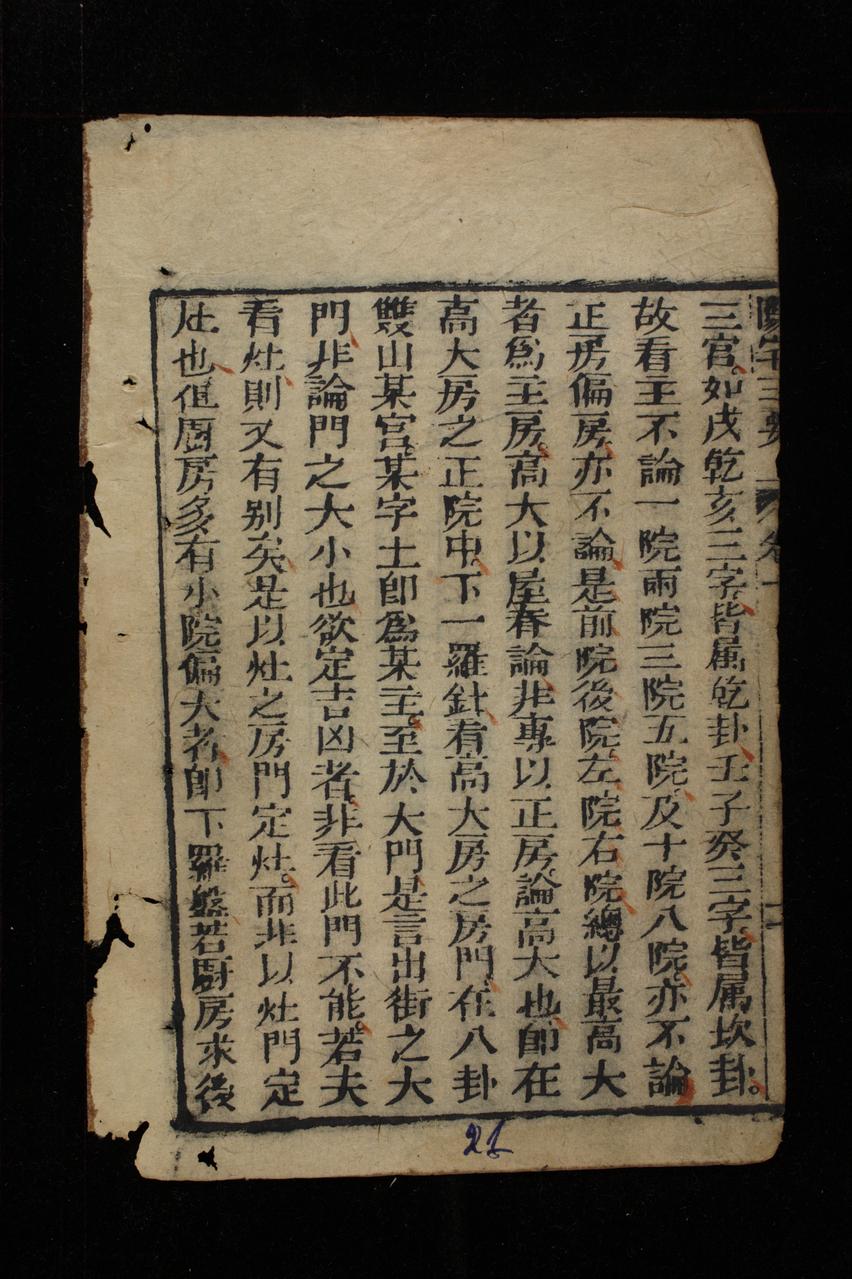 陽宅三要 卷一 二
三官如戌乾亥三字皆属乾卦壬子癸三字皆属坎卦。
故看主不論一院兩院三院五院及十院八院亦不論
正房偏房亦不論是前院後院左院右院總以最高大
者為主房高大以屋脊論非專以正房論高大也即在
高大房之正院中下一羅針看高大房之房門在八卦
雙山某宫某字土即為某主至於大門是言出街之大
門非論門之大小也欲定吉凶者非看此門不能若夫
看灶則又有别矣是以灶之房門定灶而非以灶門定
灶也但厨房多有小院偏大者即下羅盤若厨房求後
21